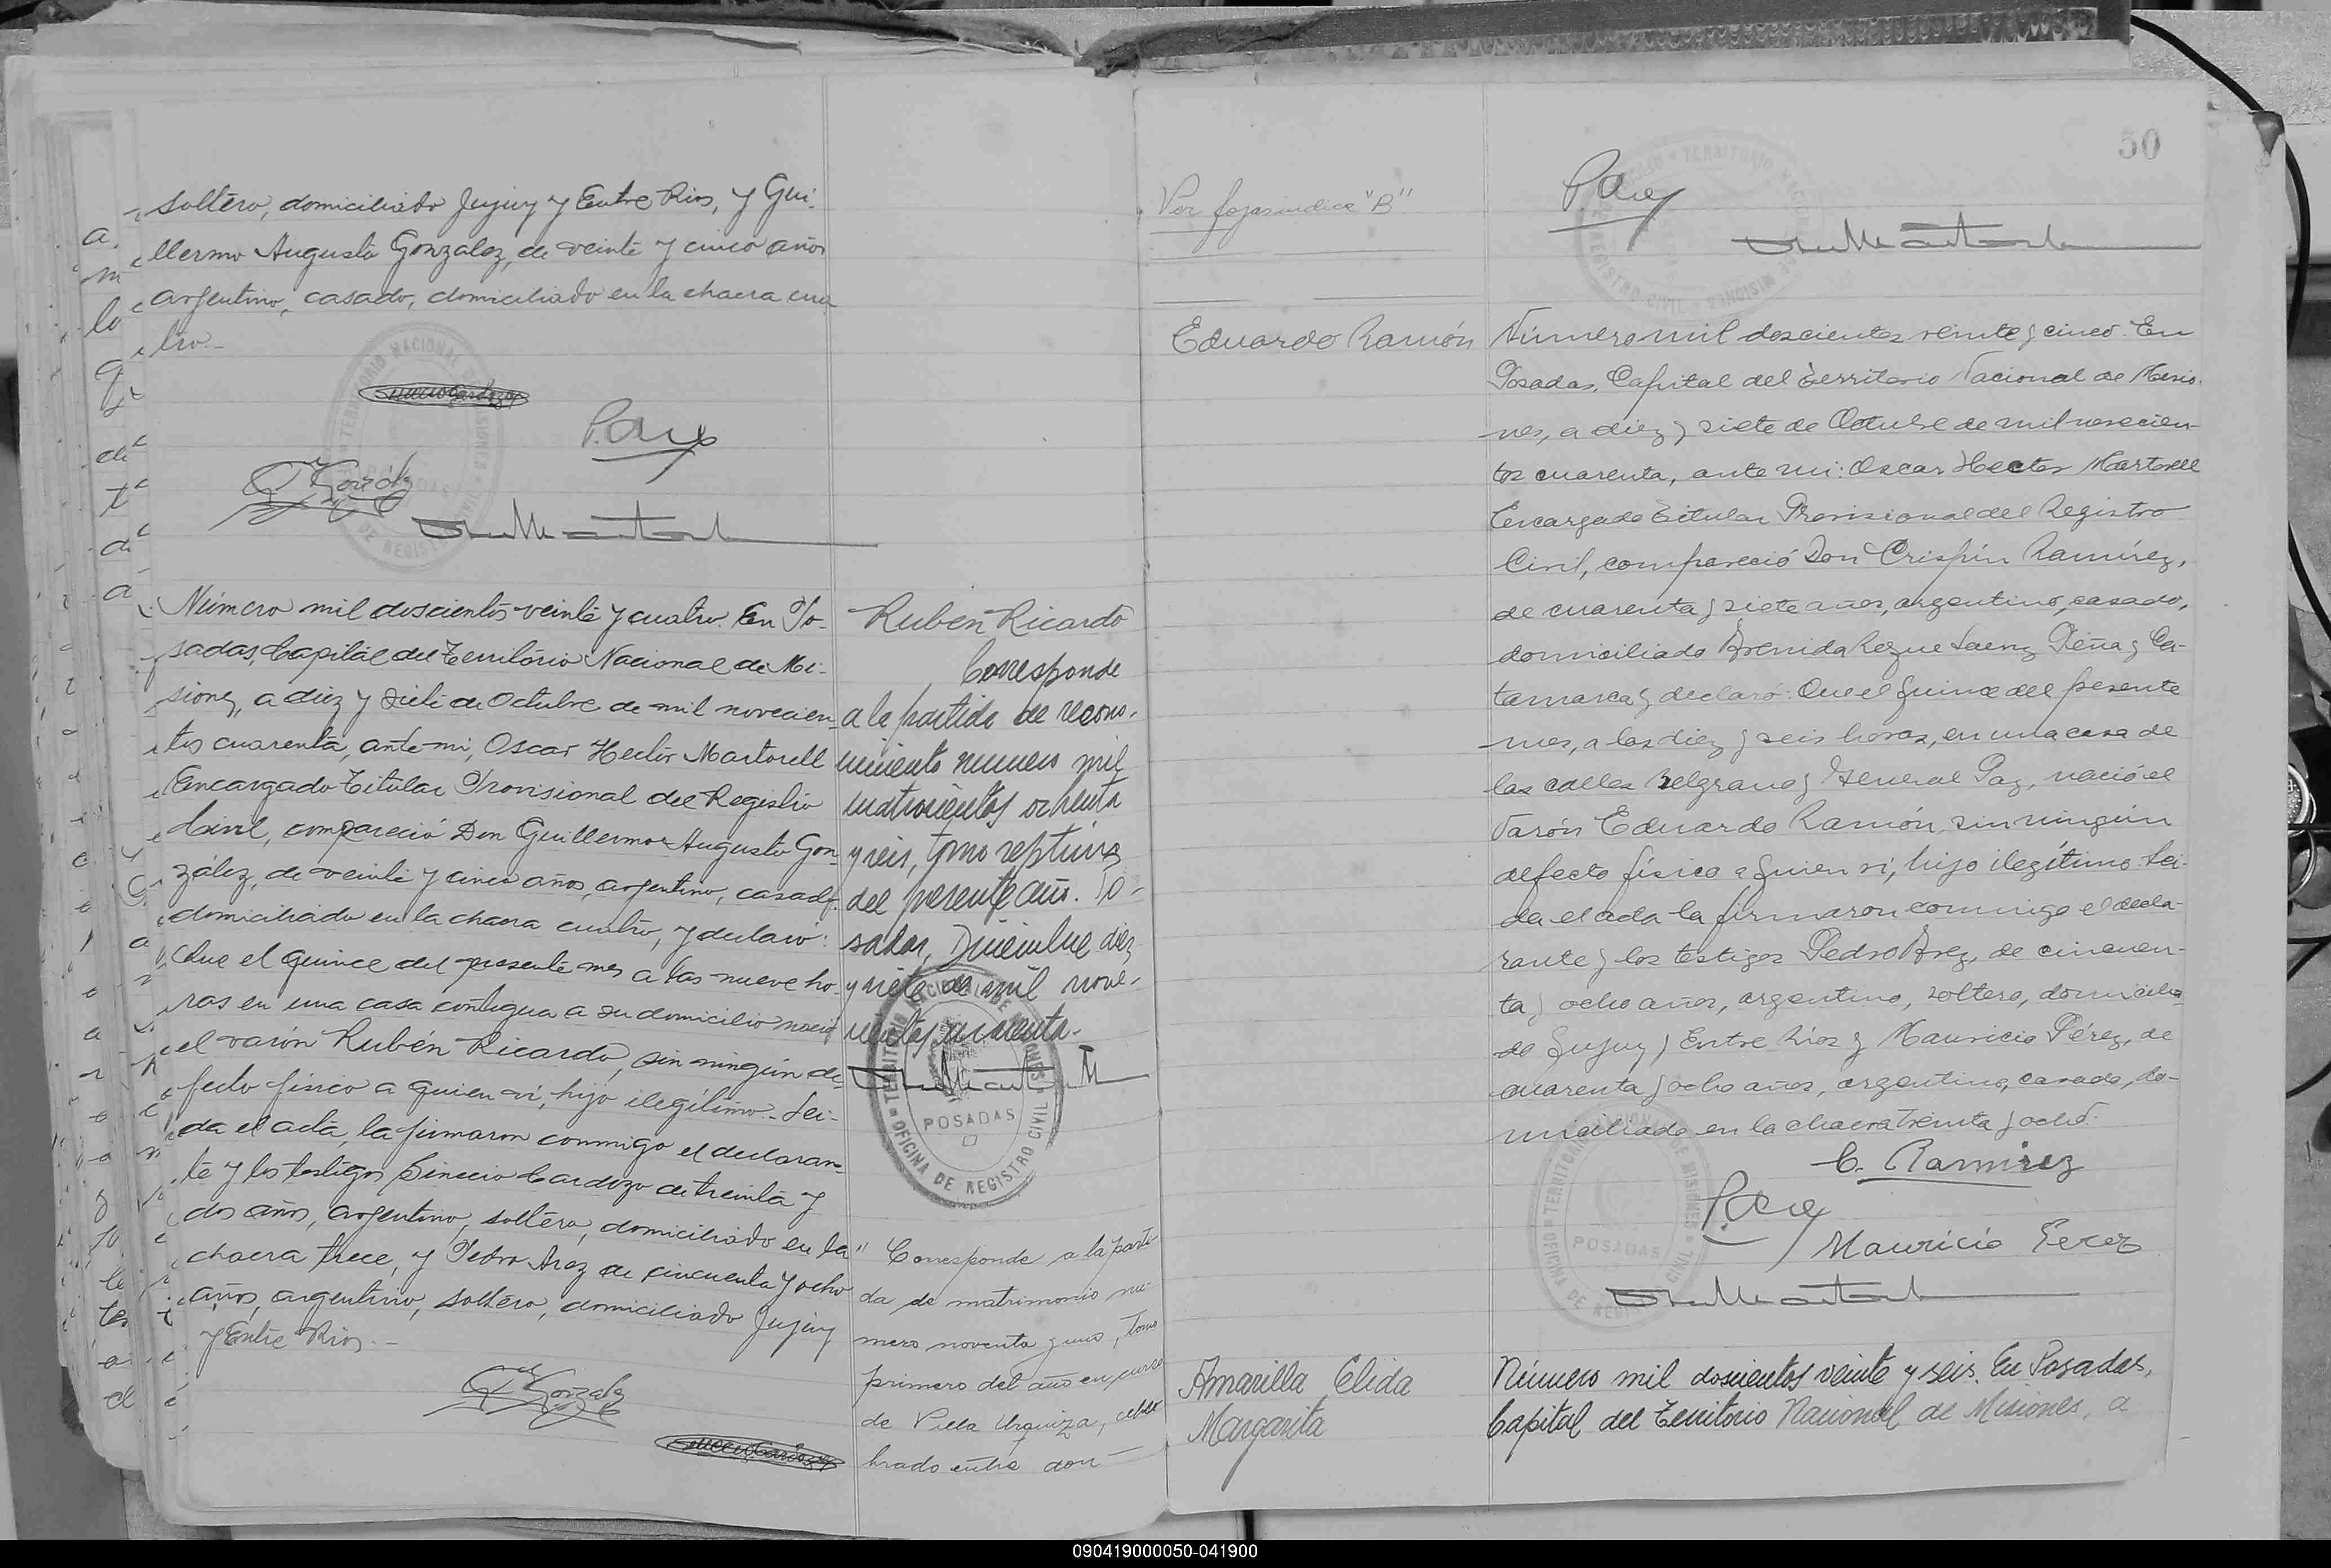 soltero, domiciliado Jujuy y Entre Rios, y Gui-
llermo Augusto Gonzalez, de veinte y cinco años
argentino, casado, domiciliado en la chacra cua
tro.-
P. Arez
G. Gonzalez
Número mil doscientos veinte y cuatro. En Po-
sadas, Capital del Territorio Nacional de Mi-
siones, a diez y siete de Octubre de mil novecien
tos cuarenta, ante mi, Oscar Hector Martorell
Encargado Titular Provisional del Registro
Civil, compareció Don Guillermo Augusto Gon
zález, de veinte y cinco años, argentino, casado,
domiciliado en la chacra cuatro, y declaró:
Que el quince del presente mes a las nueve ho-
ras en una casa contigua a su domicilio nació
el varón Rubén Ricardo, sin ningún de-
fecto físico a quien vi, hijo ilegítimo.- Lei-
da el acta, la firmaron conmigo el declaran-
te y los testigos Sinecio Cardozo de treinta y
dos años, argentino, soltero, domiciliado en la
chacra trece, y Pedro Arez de cincuenta y ocho
años, argentino, soltero, domiciliado Jujuy
y Entre Rios.-
G. Gonzalez
Rubén Ricardo
Corresponde
a la partida de recono-
cimiento numero mil
cuatrocientos ochenta
y seis, tomo septimo
del presente año. Po-
sadas, Diciembre diez
y siete de mil nove-
cientos cuarenta.
TERRITORIO NACIONAL DE MISIONES
POSADAS
OFICINA DE REGISTRO CIVIL
" Corresponde a la parti
da de matrimonio nú-
mero noventa y uno, tomo
primero del año en curso
de Villa Urquiza, cele
brado entre don
50
Ver fojas indice "B"
P. Arez
Eduardo Ramón
Número mil doscientos veinte y cinco. En
Posadas, Capital del Territorio Nacional de Misio-
nes, a diez y siete de Octubre de mil novecien-
tos cuarenta, ante mi: Oscar Hector Martorell
Encargado Titular Provisional del Registro
Civil, compareció Don Crispín Ramírez,
de cuarenta y siete años, argentino, casado,
domiciliado Avenida Roque Saenz Peña y Ca-
tamarca y declaró: Que el quince del presente
mes, a las diez y seis horas, en una casa de
las calles Belgrano y General Paz, nació el
varón Eduardo Ramón, sin ningún
defecto físico a quien vi, hijo ilegítimo. Lei-
da el acta la firmaron conmigo el decla-
rante y los testigos Pedro Arez, de cincuen-
ta y ocho años, argentino, soltero, domicilia
do Jujuy y Entre Ríos y Mauricio Pérez, de
cuarenta y ocho años, argentino, casado, do-
miciliado en la chacra treinta y ocho.
C. Ramirez
P. Arez
Mauricio Perez
Amarilla Elida
Margarita
Número mil doscientos veinte y seis. En Posadas,
Capital del Territorio Nacional de Misiones, a
090419000050-041900